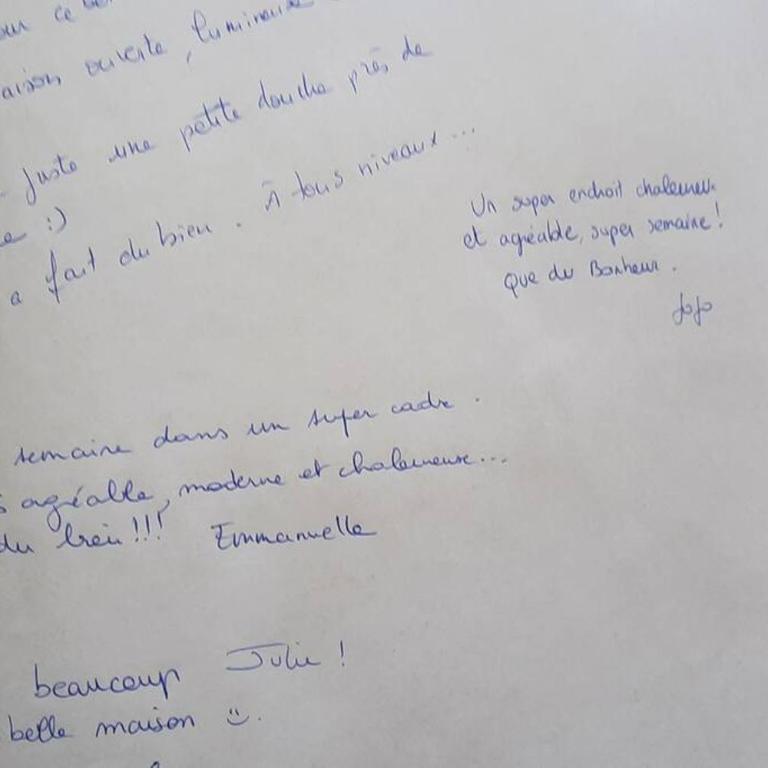 ce
aison ouverte, lumineuse
juste une petite douche près de
:)
a fait du bien. À tous niveaux...
Un super endroit chaleureux
et agréable, super semaine!
que du Bonheur.
JoJo
semaine dans un super cadre.
s agéable, moderne et chaleureuse...
du bien!!! Emmanuelle
beaucoup Julie!
belle maison :)